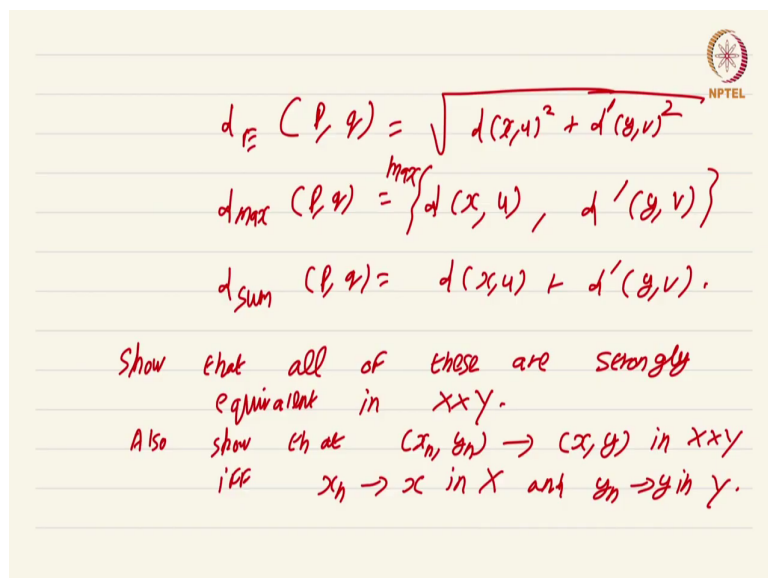 NPTEL
d_E (p, q) = √(d(x,u)² + d'(y,v)²)
d_max (p, q) = max{d(x, u), d'(y, v)}
d_sum (p, q) = d(x,u) + d'(y,v).
Show that all of these are strongly
equivalent in X×Y.
Also show that (x_n, y_n) → (x, y) in X×Y
iff x_n → x in X and y_n → y in Y.